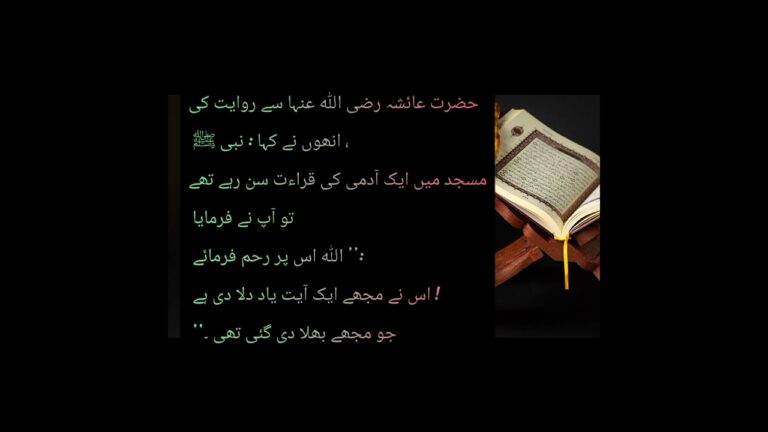 حضرت عائشہ رضی اللہ عنہا سے روایت کی
، انھوں نے کہا : نبی ﷺ
مسجد میں ایک آدمی کی قراءت سن رہے تھے
تو آپ نے فرمایا
:'' اللہ اس پر رحم فرمائے
! اس نے مجھے ایک آیت یاد دلا دی ہے
جو مجھے بھلا دی گئی تھی ۔''